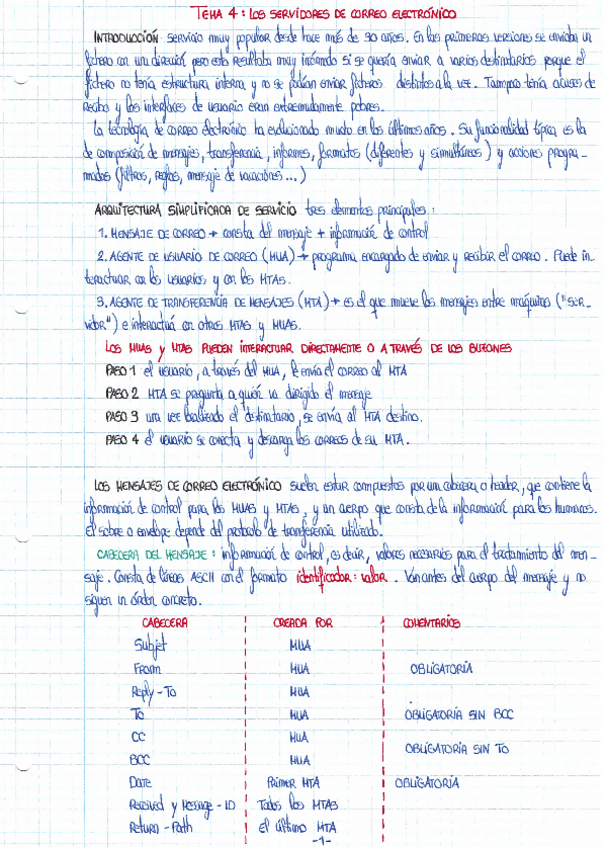 TEMA 4: LOS SERVIDORES DE CORREO ELECTRÓNICO
INTRODUCCIÓN servicio muy popular desde hace más de 30 años. En las primeras versiones se enviaba un
fichero con una dirección pero esto resultaba muy incómodo si se quería enviar a varios destinatarios porque el
fichero no tenía estructura interna y no se podían enviar ficheros distintos a la vez. Tampoco tenía acuses de
recibo y las interfaces de usuario eran extremadamente pobres.
La tecnología de correo electrónico ha evolucionado mucho en los últimos años. Su funcionalidad típica es la
de composición de mensajes, transferencia, informes, formatos (diferentes y simultáneos) y acciones progra-
madas (filtros, reglas, mensaje de vacaciones...)
ARQUITECTURA SIMPLIFICADA DE SERVICIO tres elementos principales:
1. MENSAJE DE CORREO → consta del mensaje + información de control
2. AGENTE DE USUARIO DE CORREO (MUA) → programa encargado de enviar y recibir el correo. Puede in-
teractuar con los usuarios y con los MTAs.
3. AGENTE DE TRANSFERENCIA DE MENSAJES (MTA) → es el que mueve los mensajes entre máquinas ("ser-
vidor") e interactúa con otros MTAs y MUAs.
LOS MUAs y MTAs PUEDEN INTERACTUAR DIRECTAMENTE O A TRAVÉS DE LOS BUZONES
PASO 1 el usuario, a través del MUA, le envía el correo al MTA
PASO 2 MTA se pregunta a quién va dirigido el mensaje
PASO 3 una vez localizado el destinatario, se envía al MTA destino.
PASO 4 el usuario se conecta y descarga los correos de su MTA.
LOS MENSAJES DE CORREO ELECTRÓNICO suelen estar compuestos por una cabecera o header, que contiene la
información de control para los MUAs y MTAs, y un cuerpo que consta de la información para los humanos.
El sobre o envelope depende del protocolo de transferencia utilizado.
CABECERA DEL MENSAJE: información de control, es decir, valores necesarios para el tratamiento del men-
saje. Consta de líneas ASCII con el formato identificador: valor. Van antes del cuerpo del mensaje y no
siguen un órden concreto.
CABECERA CREADA POR COMENTARIOS
Subjet MUA
From MUA OBLIGATORIA
Reply-To MUA
To MUA OBLIGATORIA SIN BCC
CC MUA
BCC MUA OBLIGATORIA SIN TO
Date Primer MTA OBLIGATORIA
Received y Message-ID Todos los MTAs
Return-Path El último MTA
-1-